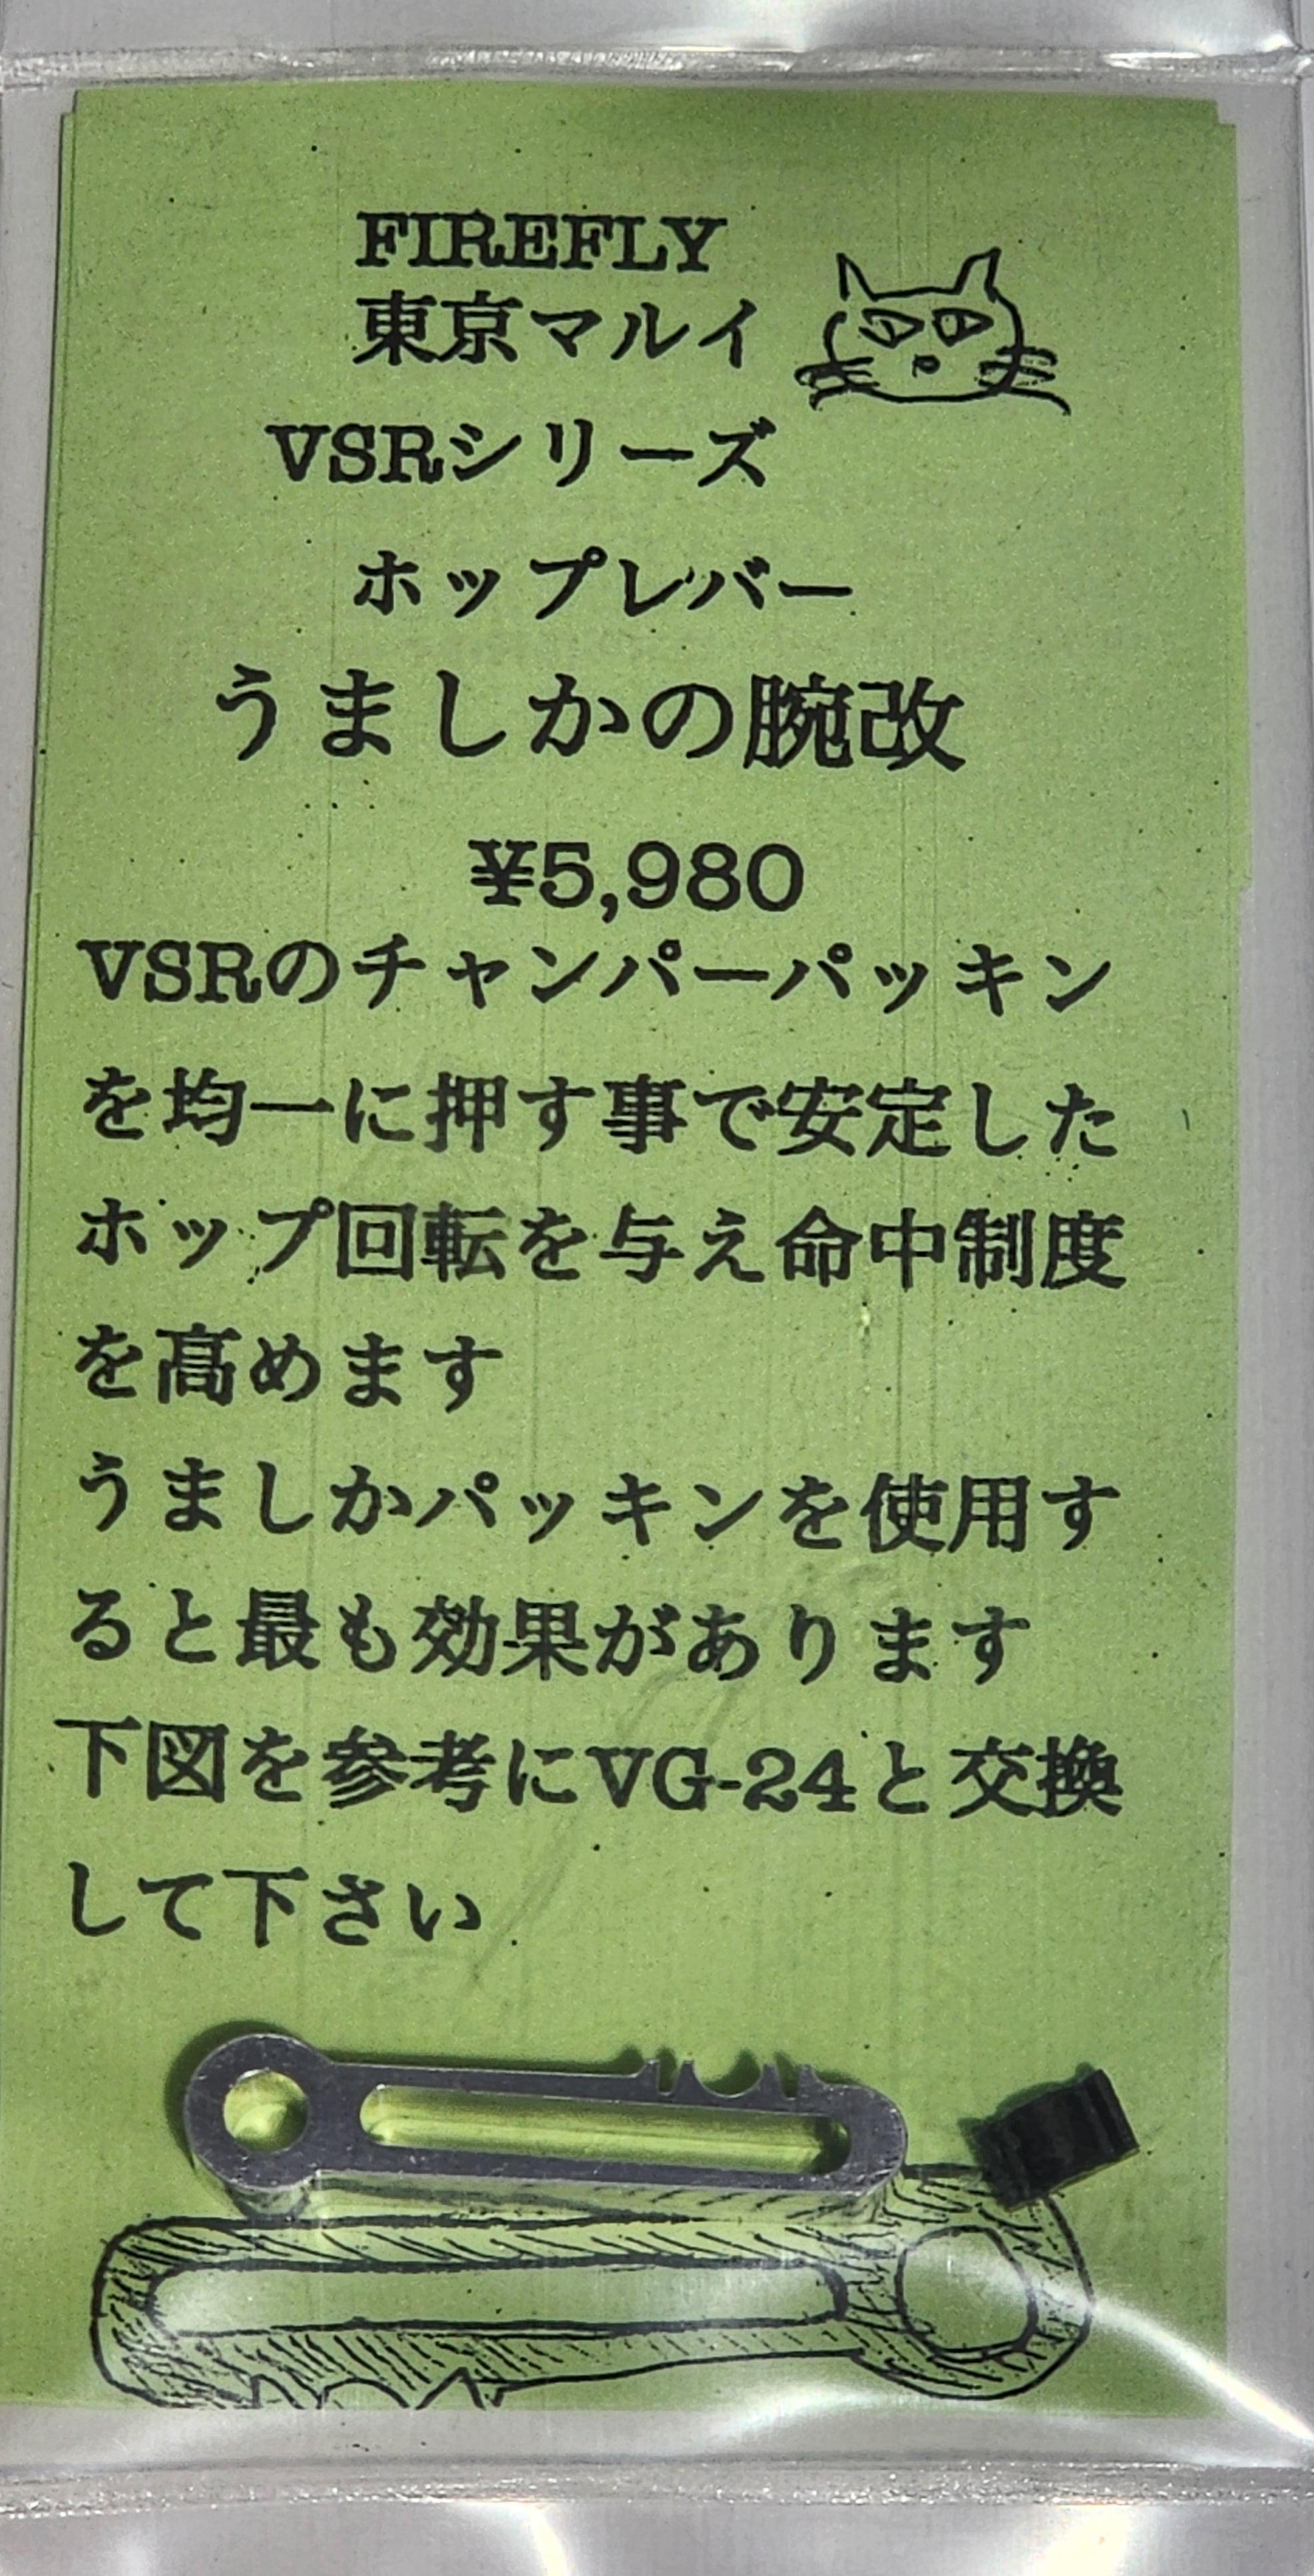 FIREFLY
東京マルイ
VSRシリーズ
ホップレバー
うましかの腕改
¥5,980
VSRのチャンパーパッキン
を均一に押す事で安定した
ホップ回転を与え命中制度
を高めます
うましかパッキンを使用す
ると最も効果があります
下図を参考にVG-24と交換
して下さい